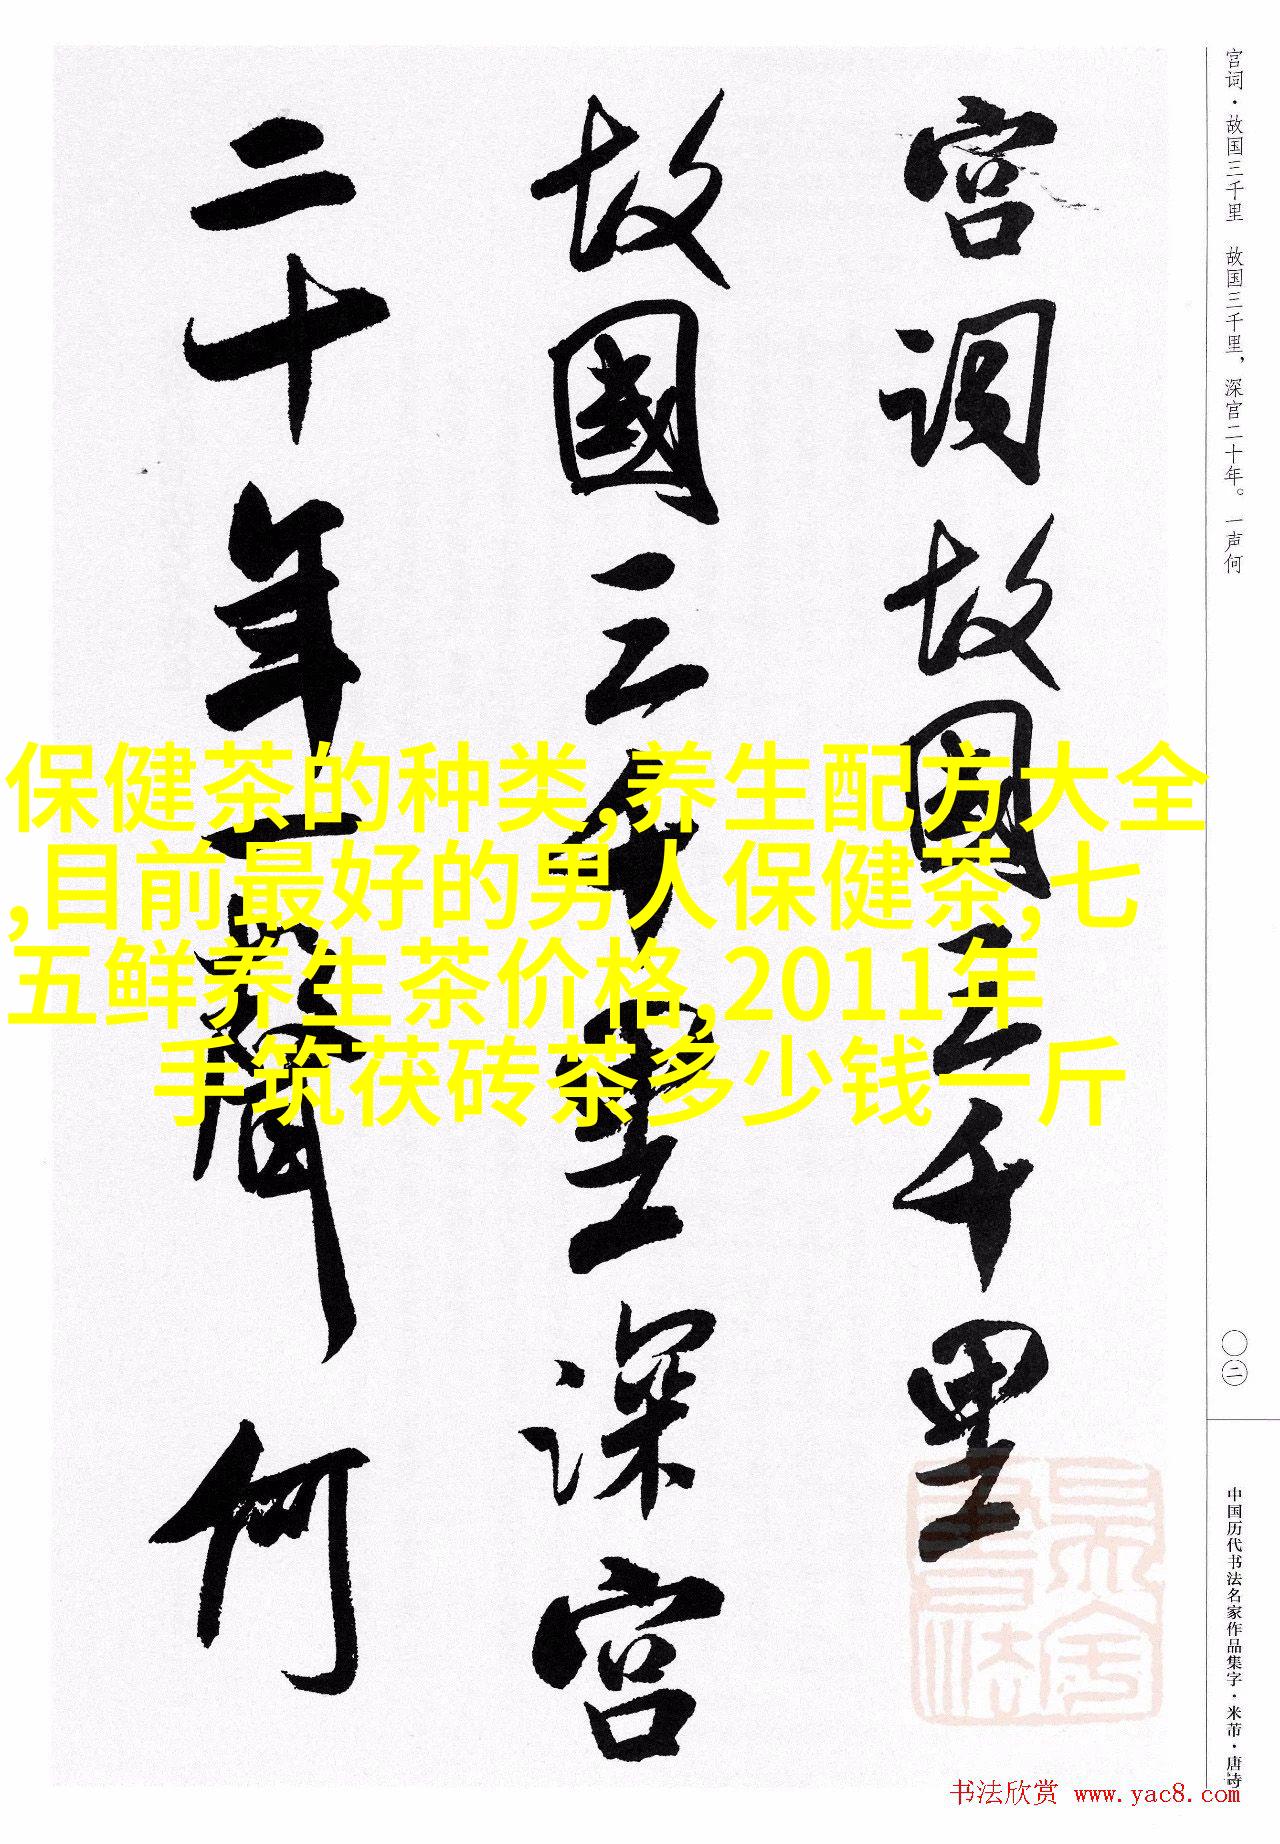 宫词·故国三千里　故国三千里，深宫二十年。一声何
宫词故国三千里
故國三千里深宫
二十年一聲何
保健茶的种类,养生配方大全
,目前最好的男人保健茶,七
五鲜养生茶价格,2011年
手筑茯砖茶多少钱一斤
〇二
中国历代书法名家作品集字·米芾·唐诗
书法欣赏 www.yac8.com